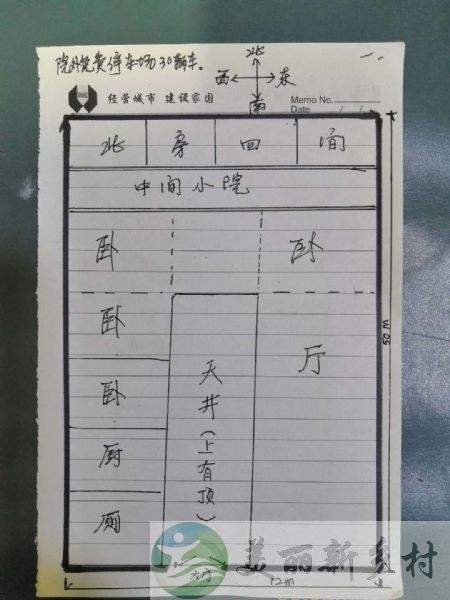 院外免费停车场30辆车。
北
西 东
南
经营城市 建设家园
Memo No.
Date
北 房 四 间
中间小院
卧 卧
卧
厅
卧
天井(上有顶)
厨
厕
50m
大门
12m
美丽新乡村